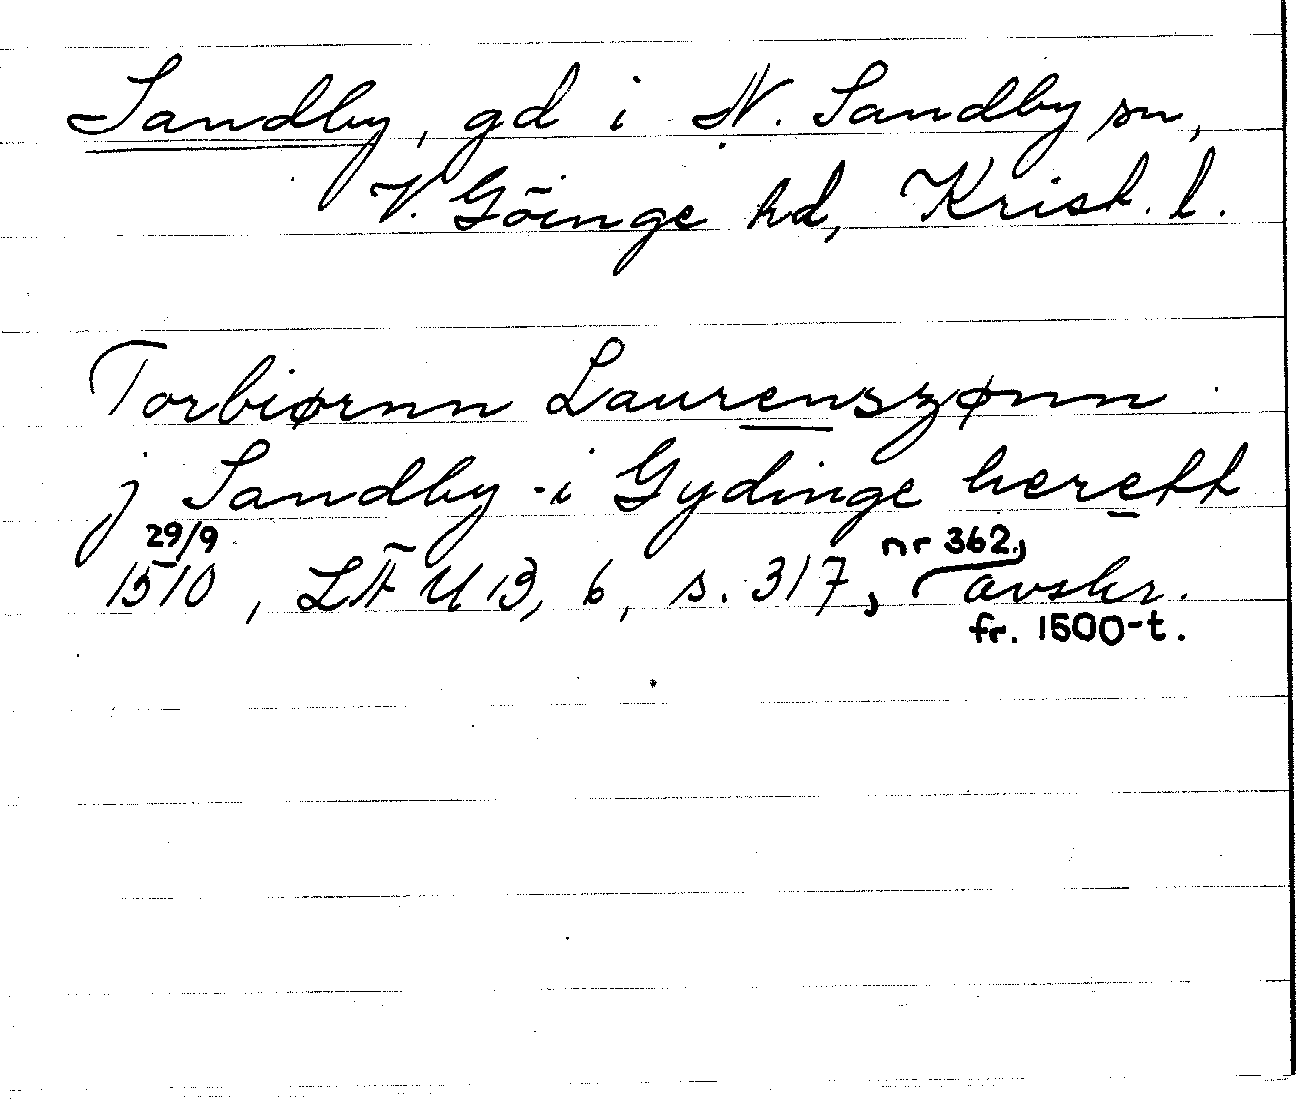 Sandby, gd i N. Sandby sn,
V. Göinge hd, Krist. l.
Torbiørnn Laurenszønn
j Sandby i Gydinge herett
29/9 1510, LÄU 13, 6, s. 317, nr 362, avskr.
fr. 1500-t.